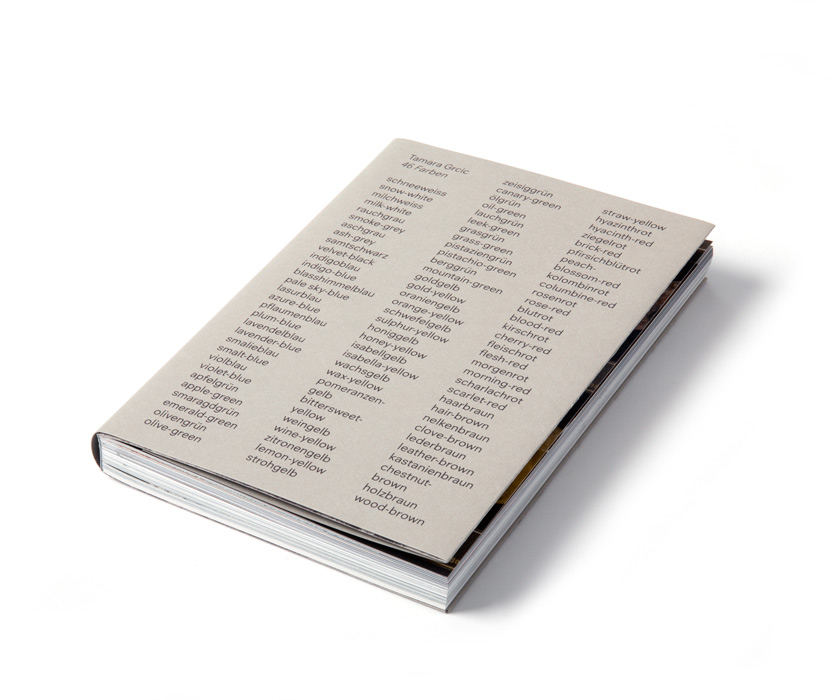 Tamara Grcic
46 Farben
schneeweiss
snow-white
milchweiss
milk-white
rauchgrau
smoke-grey
aschgrau
ash-grey
samtschwarz
velvet-black
indigoblau
indigo-blue
blasshimmelblau
pale sky-blue
lasurblau
azure-blue
pflaumenblau
plum-blue
lavendelblau
lavender-blue
smalteblau
smalt-blue
violblau
violet-blue
apfelgrün
apple-green
smaragdgrün
emerald-green
olivengrün
olive-green
zeisiggrün
canary-green
ölgrün
oil-green
lauchgrün
leek-green
grasgrün
grass-green
pistaziengrün
pistachio-green
berggrün
mountain-green
goldgelb
gold-yellow
oraniengelb
orange-yellow
schwefelgelb
sulphur-yellow
honiggelb
honey-yellow
isabellgelb
isabella-yellow
wachsgelb
wax-yellow
pomeranzen-
gelb
bittersweet-
yellow
weingelb
wine-yellow
zitronengelb
lemon-yellow
strohgelb
straw-yellow
hyazinthrot
hyacinth-red
ziegelrot
brick-red
pfirsichblütrot
peach-
blossom-red
kolombinrot
columbine-red
rosenrot
rose-red
blutrot
blood-red
kirschrot
cherry-red
fleischrot
flesh-red
morgenrot
morning-red
scharlachrot
scarlet-red
haarbraun
hair-brown
nelkenbraun
clove-brown
lederbraun
leather-brown
kastanienbraun
chestnut-
brown
holzbraun
wood-brown